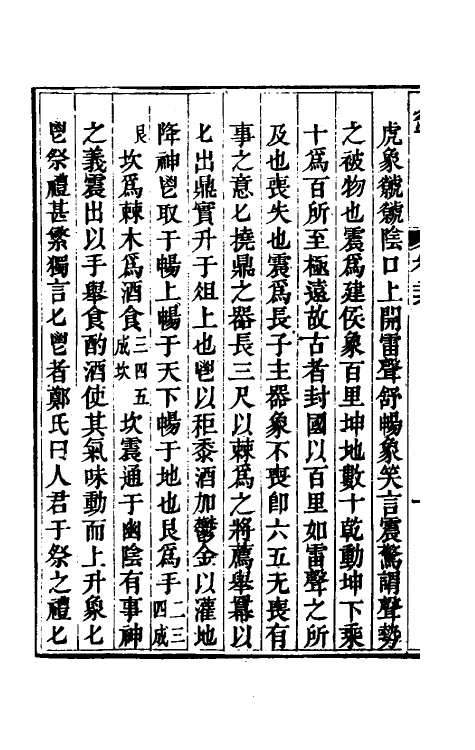 虎象虩虩陰口上開雷聲舒暢象笑言震驚謂聲勢
之被物也震爲建侯象百里坤地數十乾動坤下乘
十爲百所至極遠故古者封國以百里如雷聲之所
及也喪失也震爲長子主器象不喪卽六五无喪有
事之意匕撓鼎之器長三尺以棘爲之將薦舉冪以
匕出鼎實升于俎上也鬯以秬黍酒加鬱金以灌地
降神鬯取于暢上暢于天下暢于地也艮爲手二三四成
艮坎爲棘木爲酒食三四五成坎坎震通于幽陰有事神
之義震出以手舉食酌酒使其氣味動而上升象匕
鬯祭禮甚繁獨言匕鬯者鄭氏曰人君于祭之禮匕